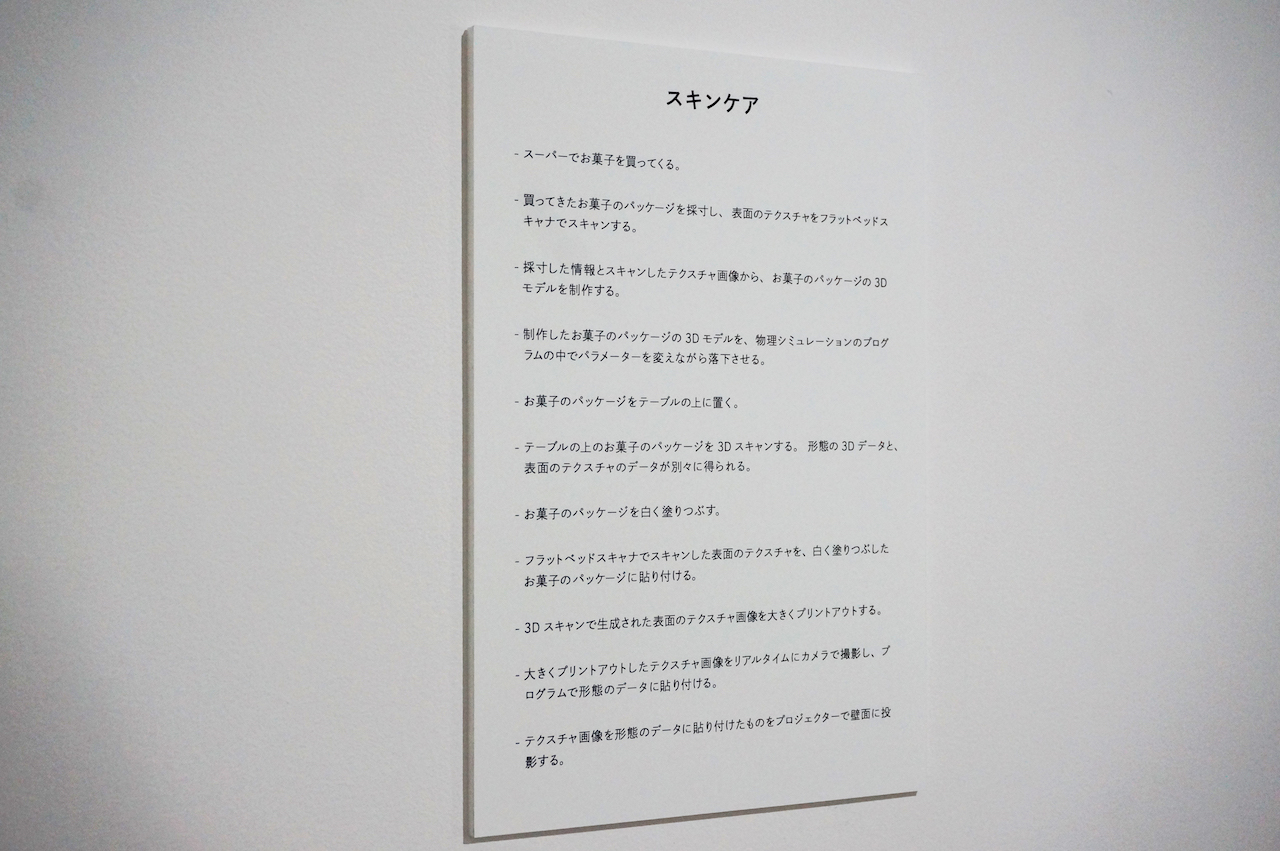 スキンケア
- スーパーでお菓子を買ってくる。
- 買ってきたお菓子のパッケージを採寸し、表面のテクスチャをフラットベッドス
キャナでスキャンする。
- 採寸した情報とスキャンしたテクスチャ画像から、お菓子のパッケージの 3D
モデルを制作する。
- 制作したお菓子のパッケージの 3D モデルを、物理シミュレーションのプログ
ラムの中でパラメーターを変えながら落下させる。
- お菓子のパッケージをテーブルの上に置く。
- テーブルの上のお菓子のパッケージを 3D スキャンする。形態の 3D データと、
表面のテクスチャのデータが別々に得られる。
- お菓子のパッケージを白く塗りつぶす。
- フラットベッドスキャナでスキャンした表面のテクスチャを、白く塗りつぶした
お菓子のパッケージに貼り付ける。
- 3D スキャンで生成された表面のテクスチャ画像を大きくプリントアウトする。
- 大きくプリントアウトしたテクスチャ画像をリアルタイムにカメラで撮影し、プ
ログラムで形態のデータに貼り付ける。
- テクスチャ画像を形態のデータに貼り付けたものをプロジェクターで壁面に投
影する。